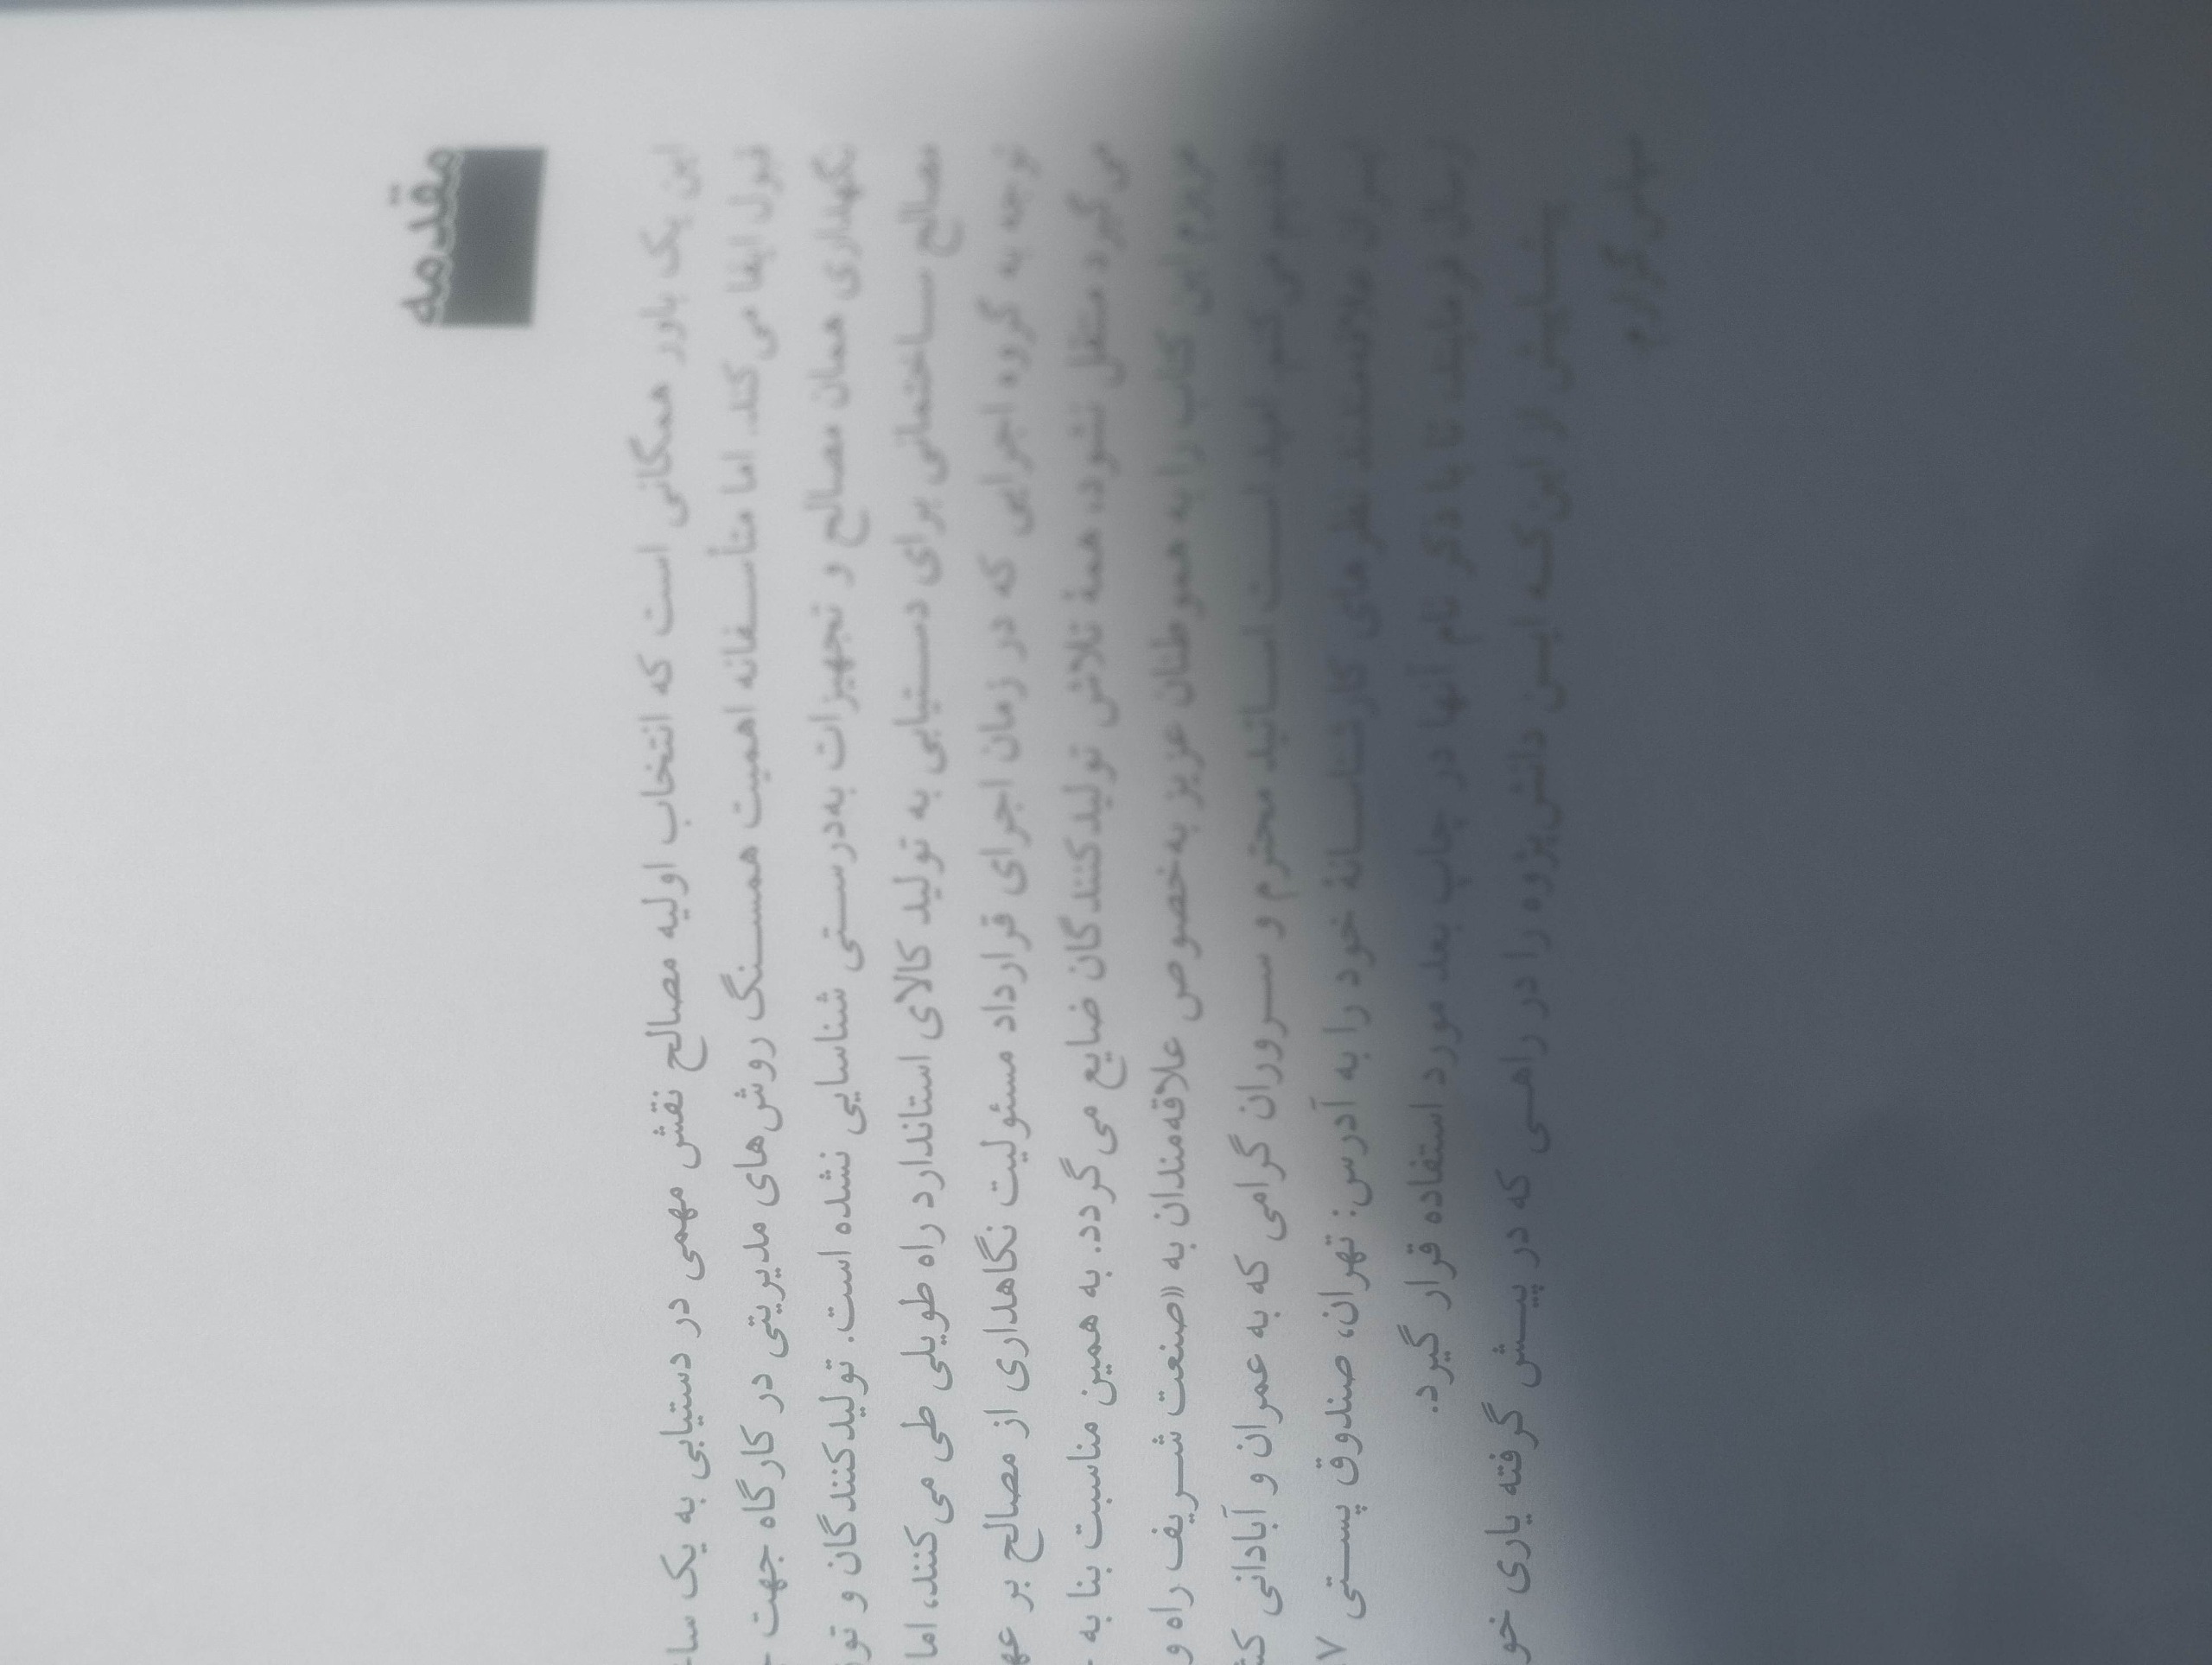 مقدمه
این یک باور همگانی است که انتخاب اولیه مصالح نقش مهمی در دستیابی به یک
قبول ایفا می‌کند. اما متأسفانه اهمیت همسنگ روش‌های مدیریتی در کارگاه جهت
نگهداری همان مصالح و تجهیزات به‌درستی شناسایی نشده است. تولیدکنندگان و
مصالح ساختمانی برای دستیابی به تولید کالای استاندارد راه طویلی طی می‌کنند، اما
توجه به گروه اجرایی که در زمان اجرای قرارداد مسئولیت نگاهداری از مصالح بر
می‌گیرد منتقل نشود، همهٔ تلاش تولیدکنندگان ضایع می‌گردد. به همین مناسبت بنا به
این کتاب را به هموطنان عزیز به‌خصوص علاقه‌مندان به «صنعت شریف راه و
تقدیم می‌کنم. امید است اساتید محترم و سروران گرامی که به عمران و آبادانی
علاقه‌مندند نظرهای کارشناسانهٔ خود را به آدرس: تهران، صندوق پستی ۷
ارسال فرمایند، تا با ذکر نام آنها در چاپ بعد مورد استفاده قرار گیرد.
پیشاپیش از این‌که این دانش‌پژوه را در راهی که در پیش گرفته یاری